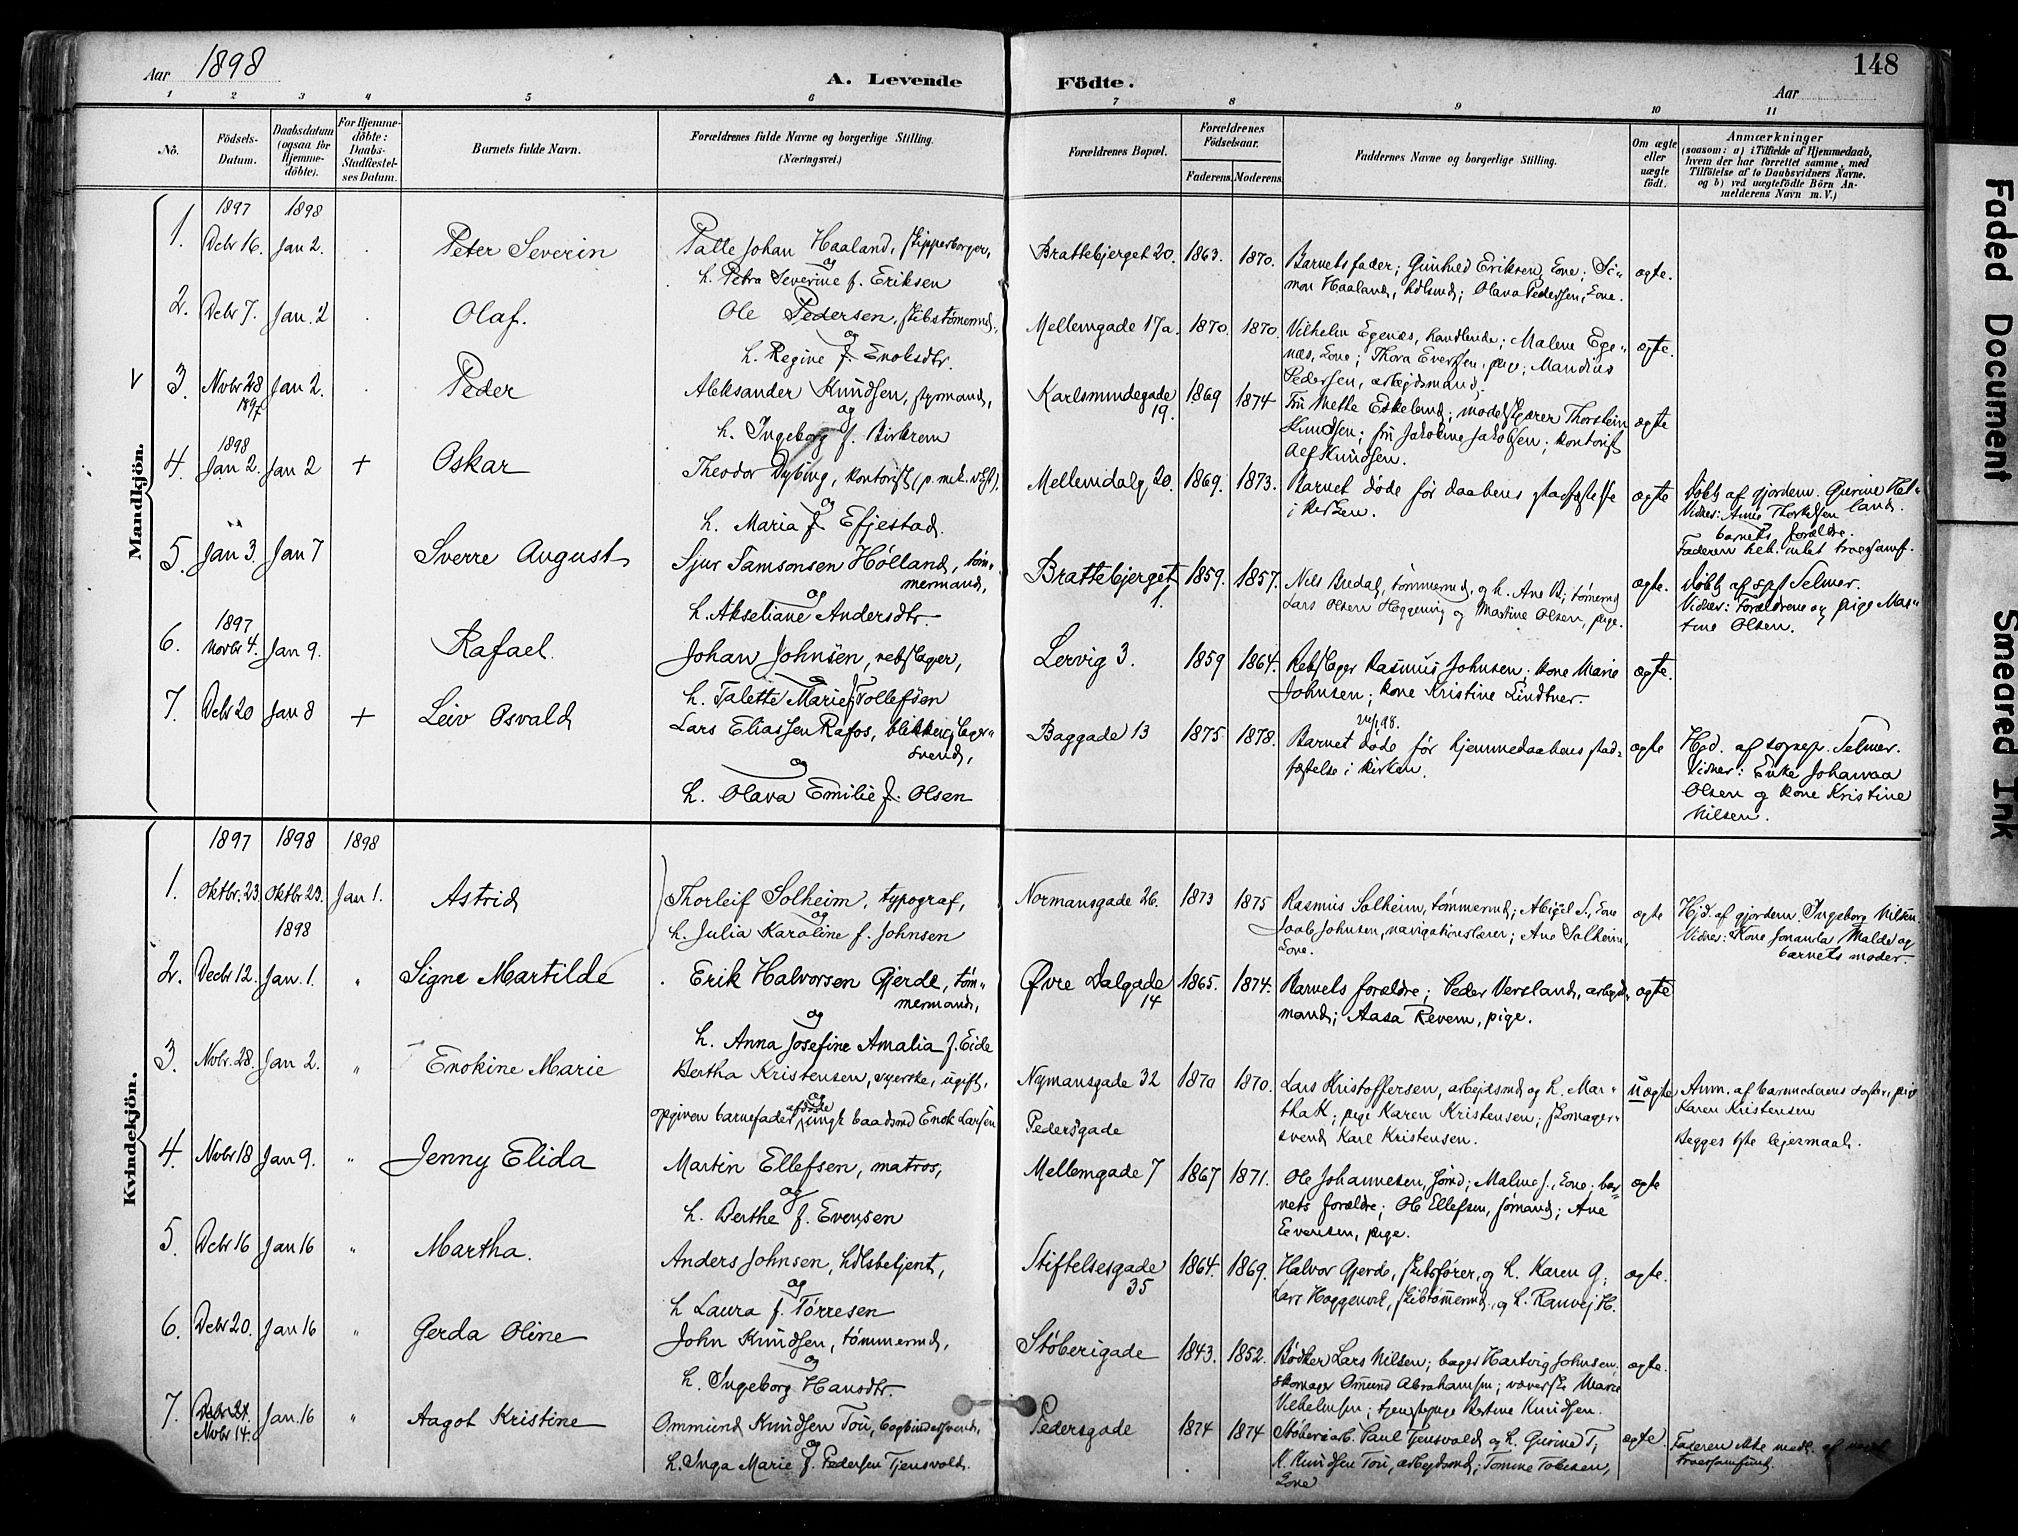 Aar 1898
A. Levende Födte.
148
Aar
1 2 3 4 5 6 7 8 9 10 11
No.
Födsels-Datum.
Daabsdatum (ogsaa for Hjemme-döbte).
For Hjemme-döbte: Daabs-Stadfæstel-ses Datum.
Barnets fulde Navn.
Forældrenes fulde Navne og borgerlige Stilling.
(Næringsvei.)
Forældrenes Bopæl.
Forældrenes Födselsaar.
Faderens. Moderens.
Faddernes Navne og borgerlige Stilling.
Om ægte eller uægte født.
Anmærkninger
(saasom: a) i Tilfælde af Hjemmedaab,
hvem der har forrettet samme, med
Tilföielse af to Daabsvidners Navne,
og b) ved uægtefödte Börn An-
melderens Navn m. V.)
Mandkjön.
1897 1898
1. Decbr 16. Jan 2. Peter Severin
Palle Johan Haaland, skipperborger,
og
h. Petra Severine f. Eriksen
Brattebjerget 20. 1863. 1870.
Barnets fader; Gunhild Eriksen, kone; Si-
mon Haaland, hdlsmd; Olava Pedersen, kone.
ægte.
2. Decbr 7. Jan. 2 Olaf.
Ole Pedersen, skibstømermd.,
og
h. Regine f. Enoksdtr.
Mellemgade 17a. 1870. 1870.
Vilhelm Egenæs, handlende; Malene Ege-
næs, kone; Thora Evertsen, pige; Mandius
Pedersen, arbejdsmand;
ægte.
3. Novbr 28 1897 Jan 2. Peder
Aleksander Knudsen, styrmand,
og
h. Ingeborg f. Birkrem
Karlsmindegade 19. 1869 1874
Fru Methe Eskeland; modelskjærer Thorstein
Knudsen; fru Jakobine Jakobsen; kontorist
Alf Knudsen.
ægte
1898
4. Jan 2. Jan 2 + Oskar
Theodor Dybing, kontorist (p. mek. vkst),
og
h. Maria f. Efjestad.
Mellemdalg 20. 1869. 1873.
Barnet døde før daabens stadfæstelse
i kirken.
ægte
Døbt af gjordem. Gurine Hel-
land.
Vidner: Anne Thorkelsen
barnets forældre.
5. Jan 3. Jan 7 Sverre August
Sjur Samsonsen Hølland, tøm-
mermand,
og
h. Akseliane Andersdtr.
Brattebjerget 1. 1859. 1857.
Nils Bredal, tømmermd, og h. Ane B; tømermd
Lars Olsen Heggening og Martine Olsen, pige.
ægte.
Faderen hek. intet troessamf.
Døbt af spr Selmer.
Vidner: Forældrene og pige Mar-
tine Olsen.
1897
6. Novbr 4. Jan 9. Rafael.
Johan Johnsen, rebslager,
og
h. Talette Marie f. Tollefsen
Lervig 3. 1859 1864.
Rebslager Rasmus Johnsen; kone Marie
Johnsen; kone Kristine Lindtner.
ægte.
7. Decbr 20 Jan 8 + Leiv Osvald
Lars Eliassen Rafos, blikkenslager-
svend,
og
h. Olava Emilie f. Olsen
Baggade 13 1875 1878.
Barnet døde før hjemmedaabens stad-
fæstelse i kirken.
ægte
Hjd. af sognepr. Selmer.
Vidner: Enke Johanna
Olsen og kone Kristine
Nilsen.
Kvindekjön.
1897 1898 1898
1. Oktbr. 23 Oktbr 23. Jan 1. Astrid
Thorleif Solheim, typograf,
og
h. Julia Karoline f. Johnsen
Normansgade 26. 1873 1875
Rasmus Solheim, tømmermd; Abigel S., kone
Joab Johnsen, navigationslærer; Ane Solheim,
kone.
ægte
Hjd. af gjordem. Ingeborg Nilsen.
Vidner: Kone Jonanda Malde og
barnets moder.
1898
2. Decbr 12. Jan. 1. " Signe Martilde
Erik Halvorsen Gjerde, tøm-
mermand,
og
h. Anna Josefine Amalia f. Eide
Øvre Dalgade 14 1865. 1874.
Barnets forældre; Peder Versland, arbejds-
mand; Aasa Revem, pige.
ægte
3. Novbr. 28. Jan 2. " Enokine Marie
Bertha Kristensen, syerske, ugift,
og
opgiven barnefader afdøde ungk. baadsmd Enok Larsen
Nymansgade 32
Pedersgade
1870 1870.
Lars Kristoffersen, arbejdsmd og h. Mar-
tha K; pige Karen Kristensen; skomager-
svend Karl Kristensen.
uægte
Anm. af barnemoderens søster, pige
Karen Kristensen
Begges 1ste lejermaal.
4. Novbr 18 Jan 9. " Jenny Elida
Martin Ellefsen, matros,
og
h. Berthe f. Evensen
Mellemgade 7 1867 1871.
Ole Johannesen, sømd; Malene J., kone; bar-
nets forældre; Ole Ellefsen, sømand; Ane
Evensen, pige.
ægte
5. Decbr 16 Jan 16 " Martha.
Anders Johnsen, hdlsbetjent,
og
h Laura f. Tørresen
Stiftelsesgade 35 1864. 1869.
Halvor Gjerde, skibsfører, og h. Karen G;
Lars Haggenvik, skibstømermd., og h. Ranvej H.
ægte.
6. Decbr 20. Jan 16 " Gerda Oline
John Knudsen, tømmermd,
og
h. Ingeborg Hansdtr.
Støberigade 1843. 1852.
Bødker Lars Nilsen; bager Hartvig Johnsen;
skomager Omund Abrahamsen; væverske Marie
Vilhelmsen; tjenestepige Bertine Knudsen.
ægte.
7. Decbr 21. Novbr 14. Jan. 16 " Aagot Kristine
Ommund Knudsen Tou, bogbindersvend,
og
h. Inga Marie f. Pedersen Tjensvold.
Pedersgade 1874 1874
Støberiarb. Paul Tjensvold og h. Gurine T;
K. Knudsen Tou, arbejdsmd; Tomine Tobiesen,
kone
ægte.
Faderen ikke medl. af noget
Troessamfund.
Faded Document
Smeared Ink